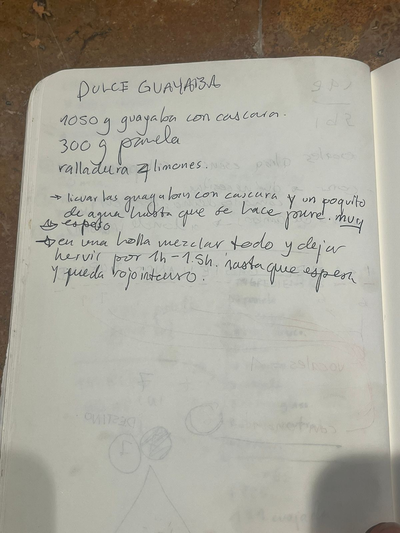 DULCE GUAYABA
1050 g guayaba con cascara.
300 g panela
ralladura 4 limones.
→ licuar las guayabas con cascara y un poquito
de agua hasta que se hace puré. muy
espeso
→ en una holla mezclar todo y dejar
hervir por 1h - 1.5h. hasta que espesa
y queda rojo intenso.
DESTINO